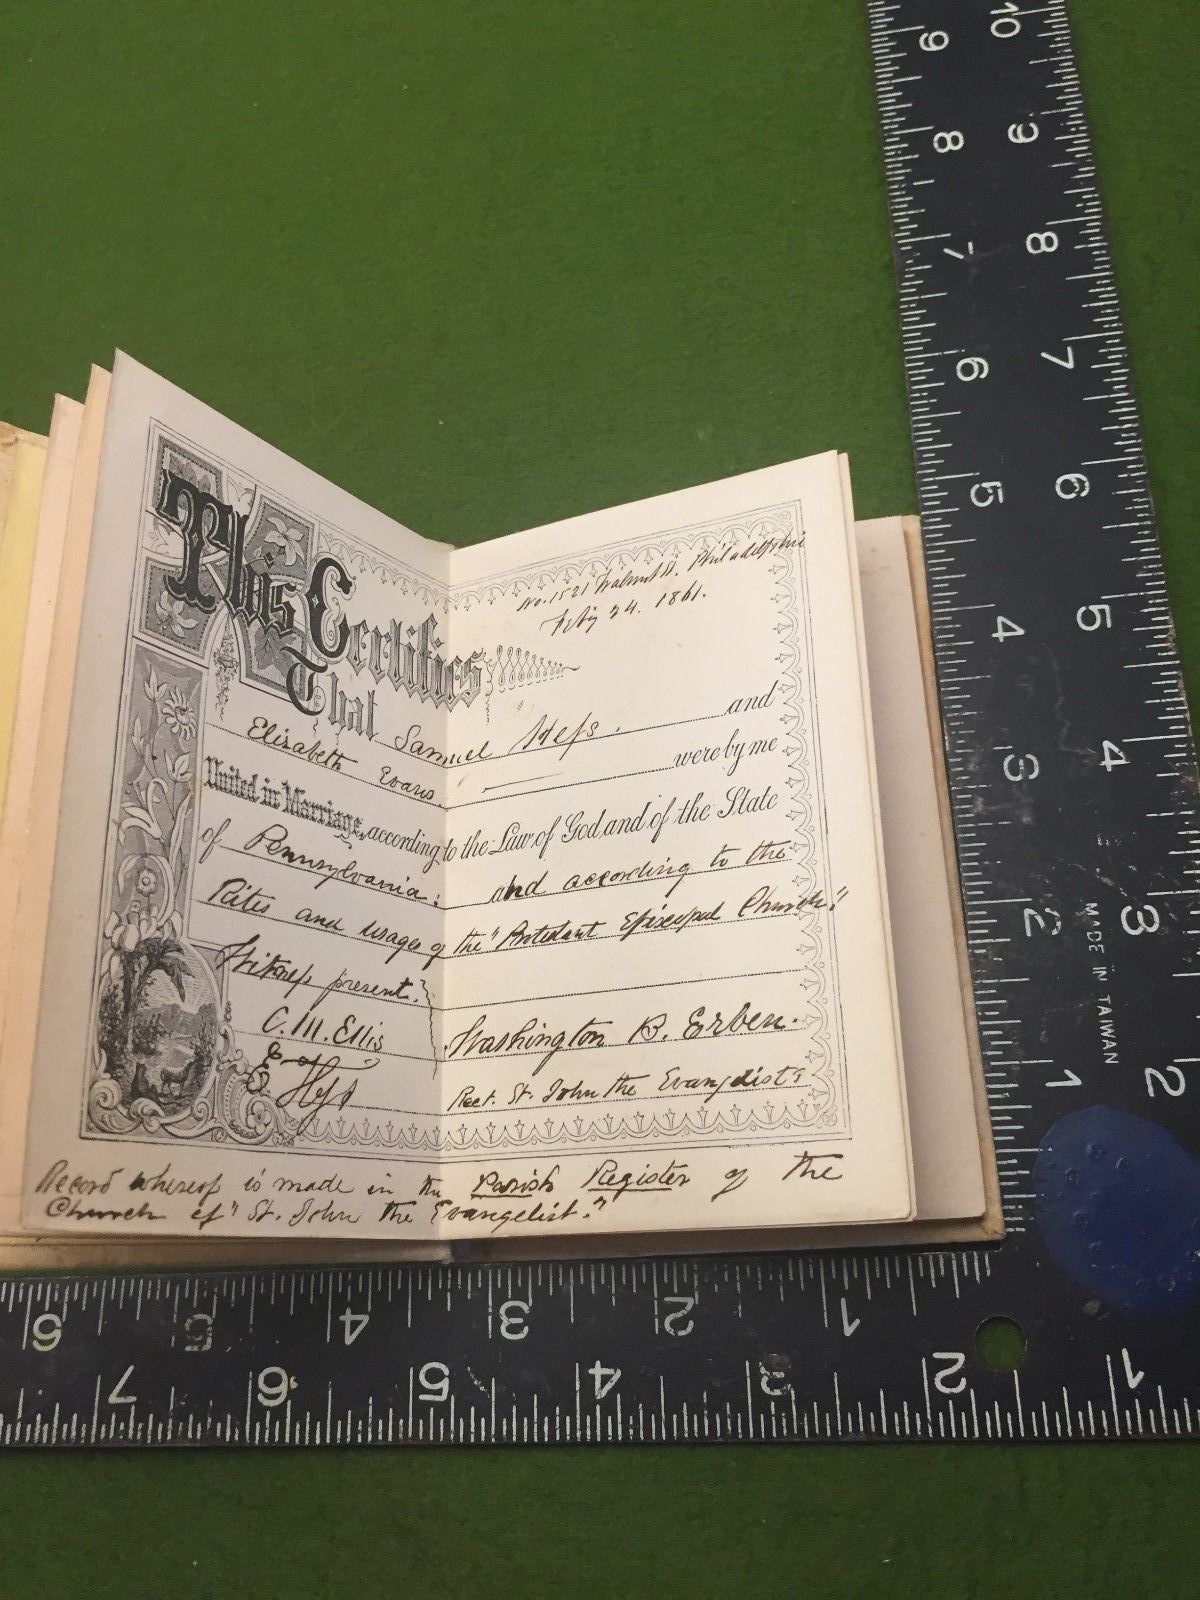 No. 1521 Walnut St. Philadelphia
Feby 24. 1861.
This Certifies
That Samuel Hess. and
Elizabeth Evans were by me
United in Marriage, according to the Law of God and of the State
of Pennsylvania: and according to the
Rites and usages of the "Protestant Episcopal Church."
Witness present.
C. M. Ellis Washington B. Erben.
Hess Rect. St. John the Evangelist's
Record whereof is made in the Parish Register of the
Church of "St. John the Evangelist."
10
9
9
8
8
7
7
6
6
5
5
4
4
3
3
2
2
1
MADE IN TAIWAN
6 5 4 3 2 1
7 6 5 4 3 2 1